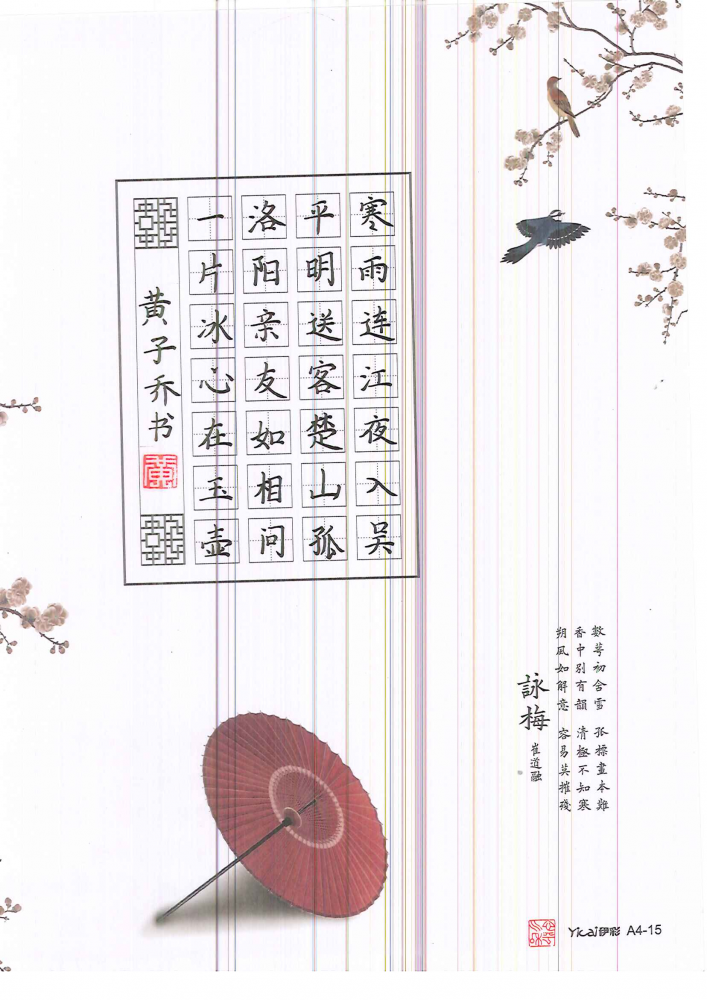 寒雨连江夜入吴
平明送客楚山孤
洛阳亲友如相问
一片冰心在玉壶
黄子乔书
黄
數萼初含雪 孤標畫本難
香中別有韻 清極不知寒
朔風如解意 容易莫摧殘
詠梅 崔道融
Yicai伊彩 A4-15